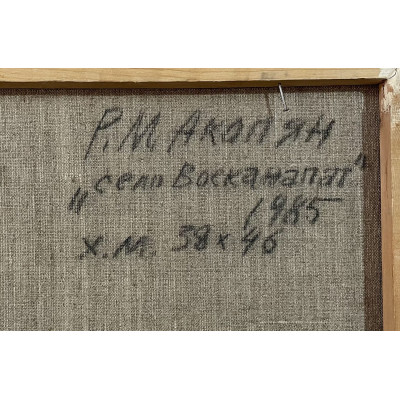 Р.М АКОПЯН
„село Восканапат"
1985
х.м. 38 х 46